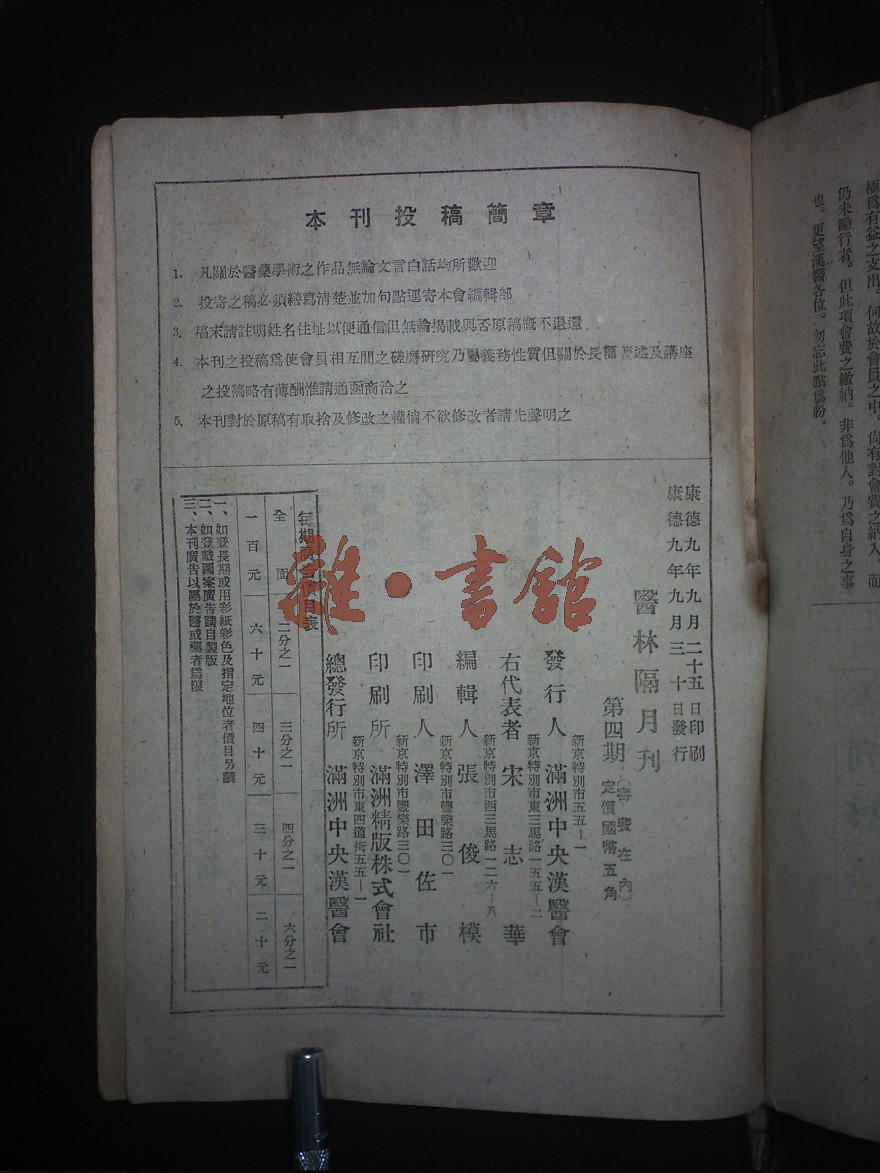 本刊投稿簡章
1. 凡關於醫藥學術之作品無論文言白話均所歡迎
2. 投寄之稿必須繕寫清楚並加句點逕寄本會編輯部
3. 稿末請註明姓名住址以便通信但無論揭載與否原稿概不退還
4. 本刊之投稿爲使會員相互間之磋磨研究乃屬義務性質但關於長篇著述及講座
之投稿略有薄酬惟請通函商洽之
5. 本刊對於原稿有取捨及修改之權倘不欲修改者請先聲明之
康德九年九月二十五日印刷
康德九年九月三十日發行
醫林隔月刊
第四期 (寄費在內) 定價國幣五角
新京特別市五五一一
發行人 滿洲中央漢醫會
新京特別市東三馬路一五五一二
右代表者 宋志華
新京特別市西三馬路一二六一八
編輯人 張俊模
新京特別市豐樂路三〇一
印刷人 澤田佐市
新京特別市豐樂路三〇一
印刷所 滿洲精版株式會社
新京特別市東四道街五五一一
總發行所 滿洲中央漢醫會
每期廣告價目表
全面 二分之一 三分之一 四分之一 六分之一
一百元 六十元 四十元 三十元 二十元
一、如登長期或用彩紙彩色及指定地位者價目另議
二、如登載圖案廣告請自製版
三、本刊廣告以屬於醫或藥者爲限
雜·書館
極爲有益之支出。何故於會員之中。尙有對會費之納入、而
仍未勵行者。但此項會費之繳納。非爲他人。乃爲自身之事
也。更望漢醫各位。勿忘此點爲盼。